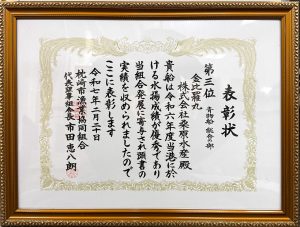 表彰状
第三位 青物船 組合の部
金比羅丸
株式会社桑原水産殿
貴船は令和六年度当港に於
ける水揚成績が優秀であり
当組合発展に寄与され顕著の
実績を収められましたので
ここに表彰します
令和七年二月二十日
枕崎市漁業協同組合
代表理事組合長 市田恵八朗